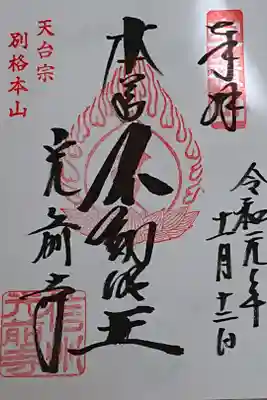 奉拝
令和元年
十一月十二日
本尊不動明王
光前寺
天台宗
別格本山
信州
光前寺